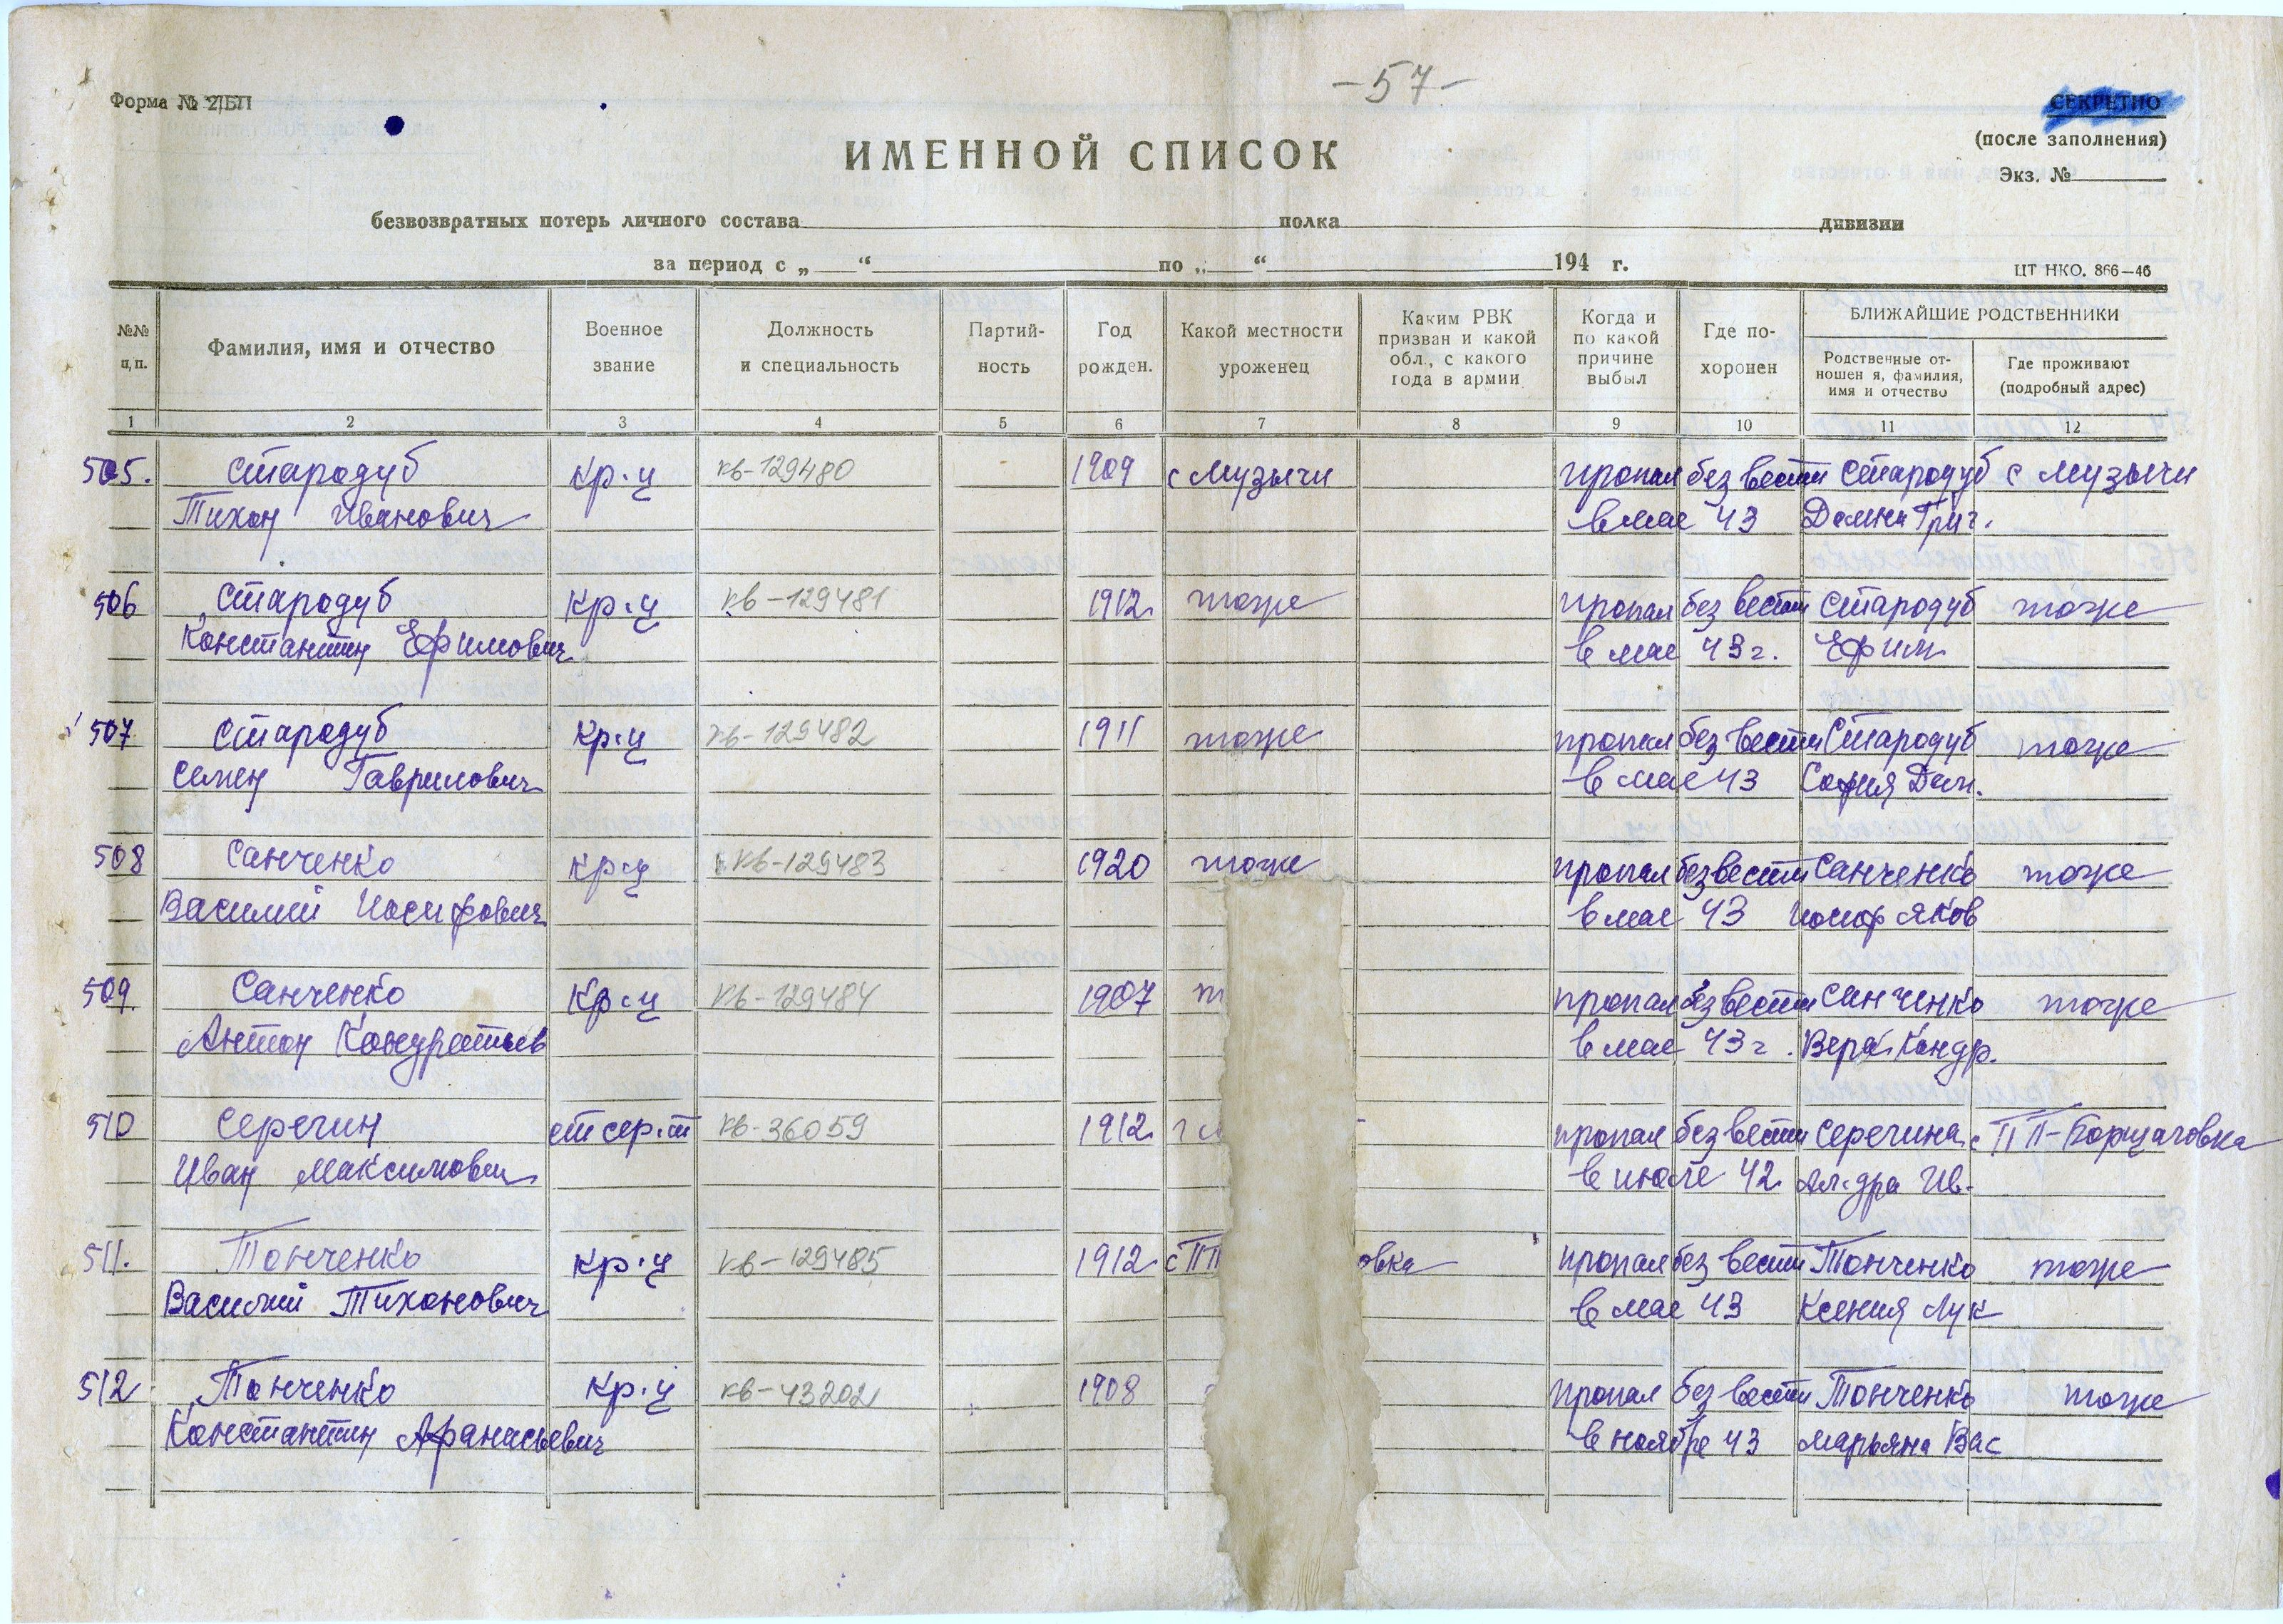 -57-
Форма № 2/БП
СЕКРЕТНО
(после заполнения)
Экз. №
ИМЕННОЙ СПИСОК
безвозвратных потерь личного состава полка дивизии
за период с „ “ по „ “ 194 г.
ЦТ НКО. 866—46
№№ п,п.
Фамилия, имя и отчество
Военное звание
Должность и специальность
Партий-ность
Год рожден.
Какой местности уроженец
Каким РВК призван и какой обл., с какого года в армии
Когда и по какой причине выбыл
Где по-хоронен
БЛИЖАЙШИЕ РОДСТВЕННИКИ
Родственные от-ношен я, фамилия, имя и отчество
Где проживают (подробный адрес)
1 2 3 4 5 6 7 8 9 10 11 12
505. Стародуб кр-ц кв-129480 1909 с Музычи пропал без вести Стародуб с Музычи
Тихон Иванович в мае 43 Домна Григ.
506 Стародуб кр-ц кв-129481 1912 тоже пропал без вести Стародуб тоже
Константин Ефимович в мае 43 г. Ефим
507 Стародуб кр-ц кв-129482 1911 тоже пропал без вести Стародуб тоже
Семен Гаврилович в мае 43 София Дан.
508 Санченко кр-ц кв-129483 1920 тоже пропал без вести Санченко тоже
Василий Иосифович в мае 43 Иосиф Яков
509 Санченко кр-ц кв-129484 1907 пропал без вести Санченко тоже
Антон Кондратьев в мае 43 г. Вера Кондр.
510 Серегин ст сер-т кв-36059 1912 пропал без вести Серегина с ПП-Борщаговка
Иван Максимович в июле 42 Ал-дра Ив.
511. Тонченко кр-ц кв-129485 1912 с ПП овка пропал без вести Тонченко тоже
Василий Тихонович в мае 43 Ксения Лук
512 Тонченко кр-ц кв-43202 1908 пропал без вести Тонченко тоже
Константин Афанасьевич в ноябре 43 Марьяна Вас